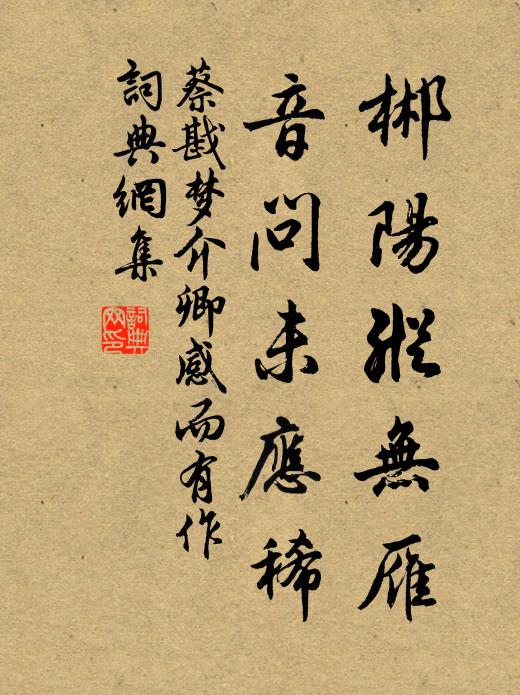 郴陽縱無雁
音問未應稀
蔡戡梦介卿感而有作
詞典網集
詞典网印